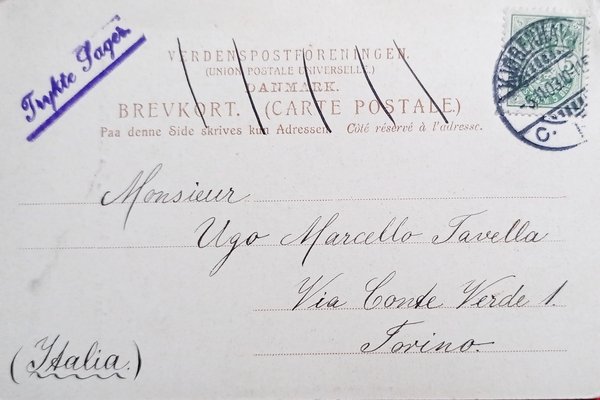 Trykte Sager
VERDENSPOSTFORENINGEN.
(UNION POSTALE UNIVERSELLE.)
DANMARK.
BREVKORT. (CARTE POSTALE.)
Paa denne Side skrives kun Adressen. Côté réservé à l'adresse.
KJØBENHAVN
C.
Monsieur
Ugo Marcello Tavella
Via Conte Verde 1.
Torino.
(Italia.)